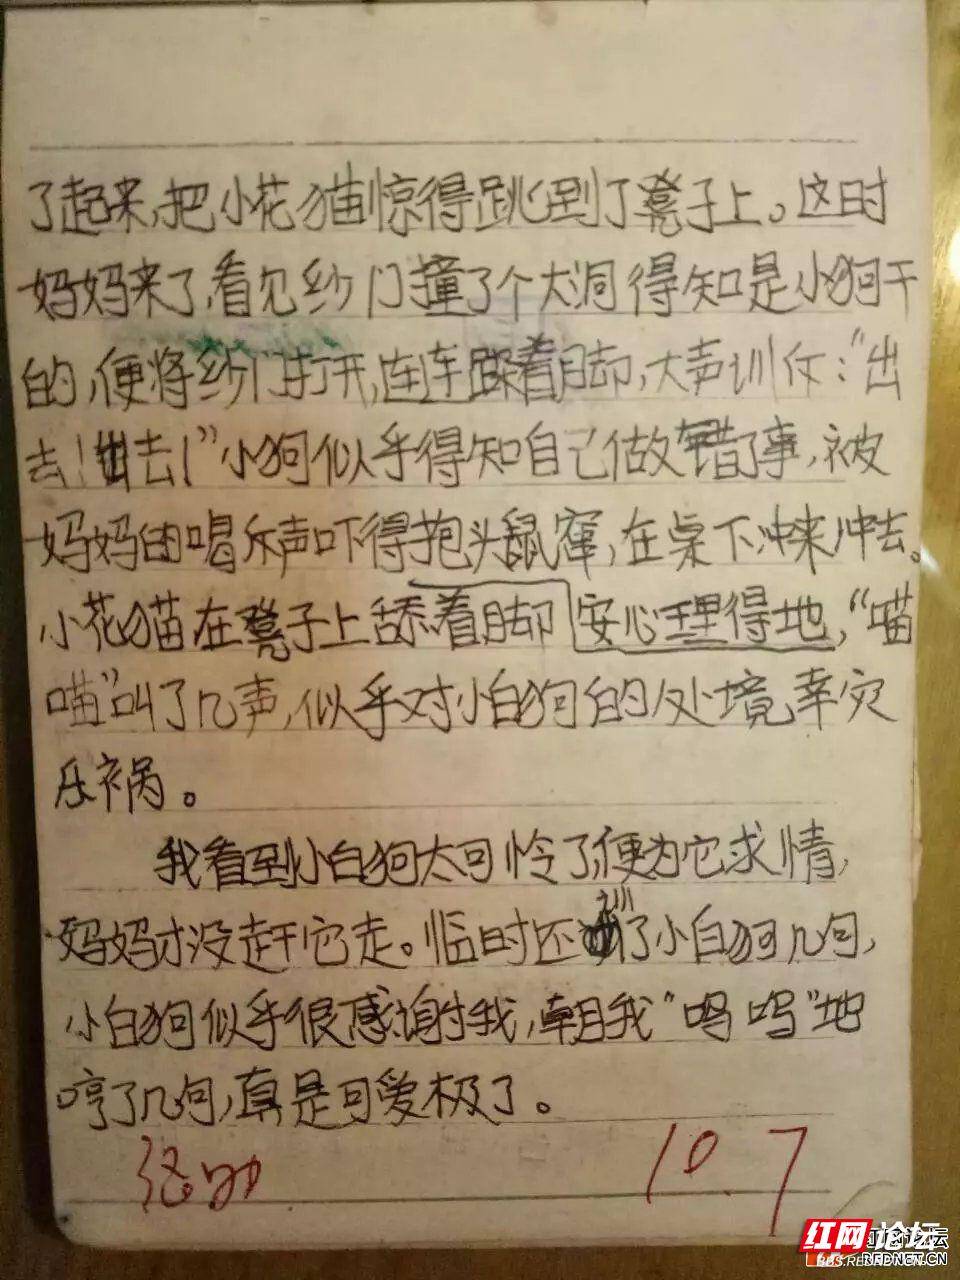 了起来，把小花猫惊得跳到了凳子上。这时
妈妈来了，看见纱门撞了个大洞得知是小狗干
的，便将纱门打开，连连跺着脚，大声训斥：“出
去！出去！”小狗似乎得知自己做错了事，被
妈妈的喝斥声吓得抱头鼠窜，在桌下冲来冲去。
小花猫在凳子上舔着脚安心理得地，“喵
喵”叫了几声，似乎对小白狗的处境幸灾
乐祸。
我看到小白狗太可怜了便为它求情，
妈妈才没赶它走。临时还训了小白狗几句，
小白狗似乎很感谢我，朝我“呜呜”地
哼了几句，真是可爱极了。
10.7
红网论坛
BBS.REDNET.CN